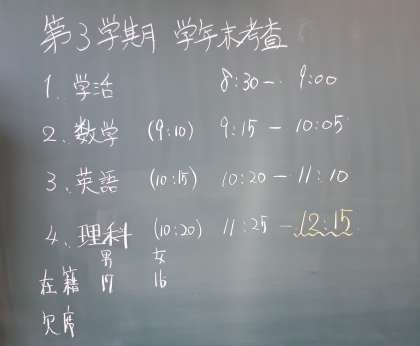 第3学期 学年末考査
1. 学活 8:30- 9:00
2. 数学 (9:10) 9:15 - 10:05
3. 英語 (10:15) 10:20 - 11:10
4. 理科 (10:20) 11:25 - 12:15
男 女
在籍 17 16
欠席